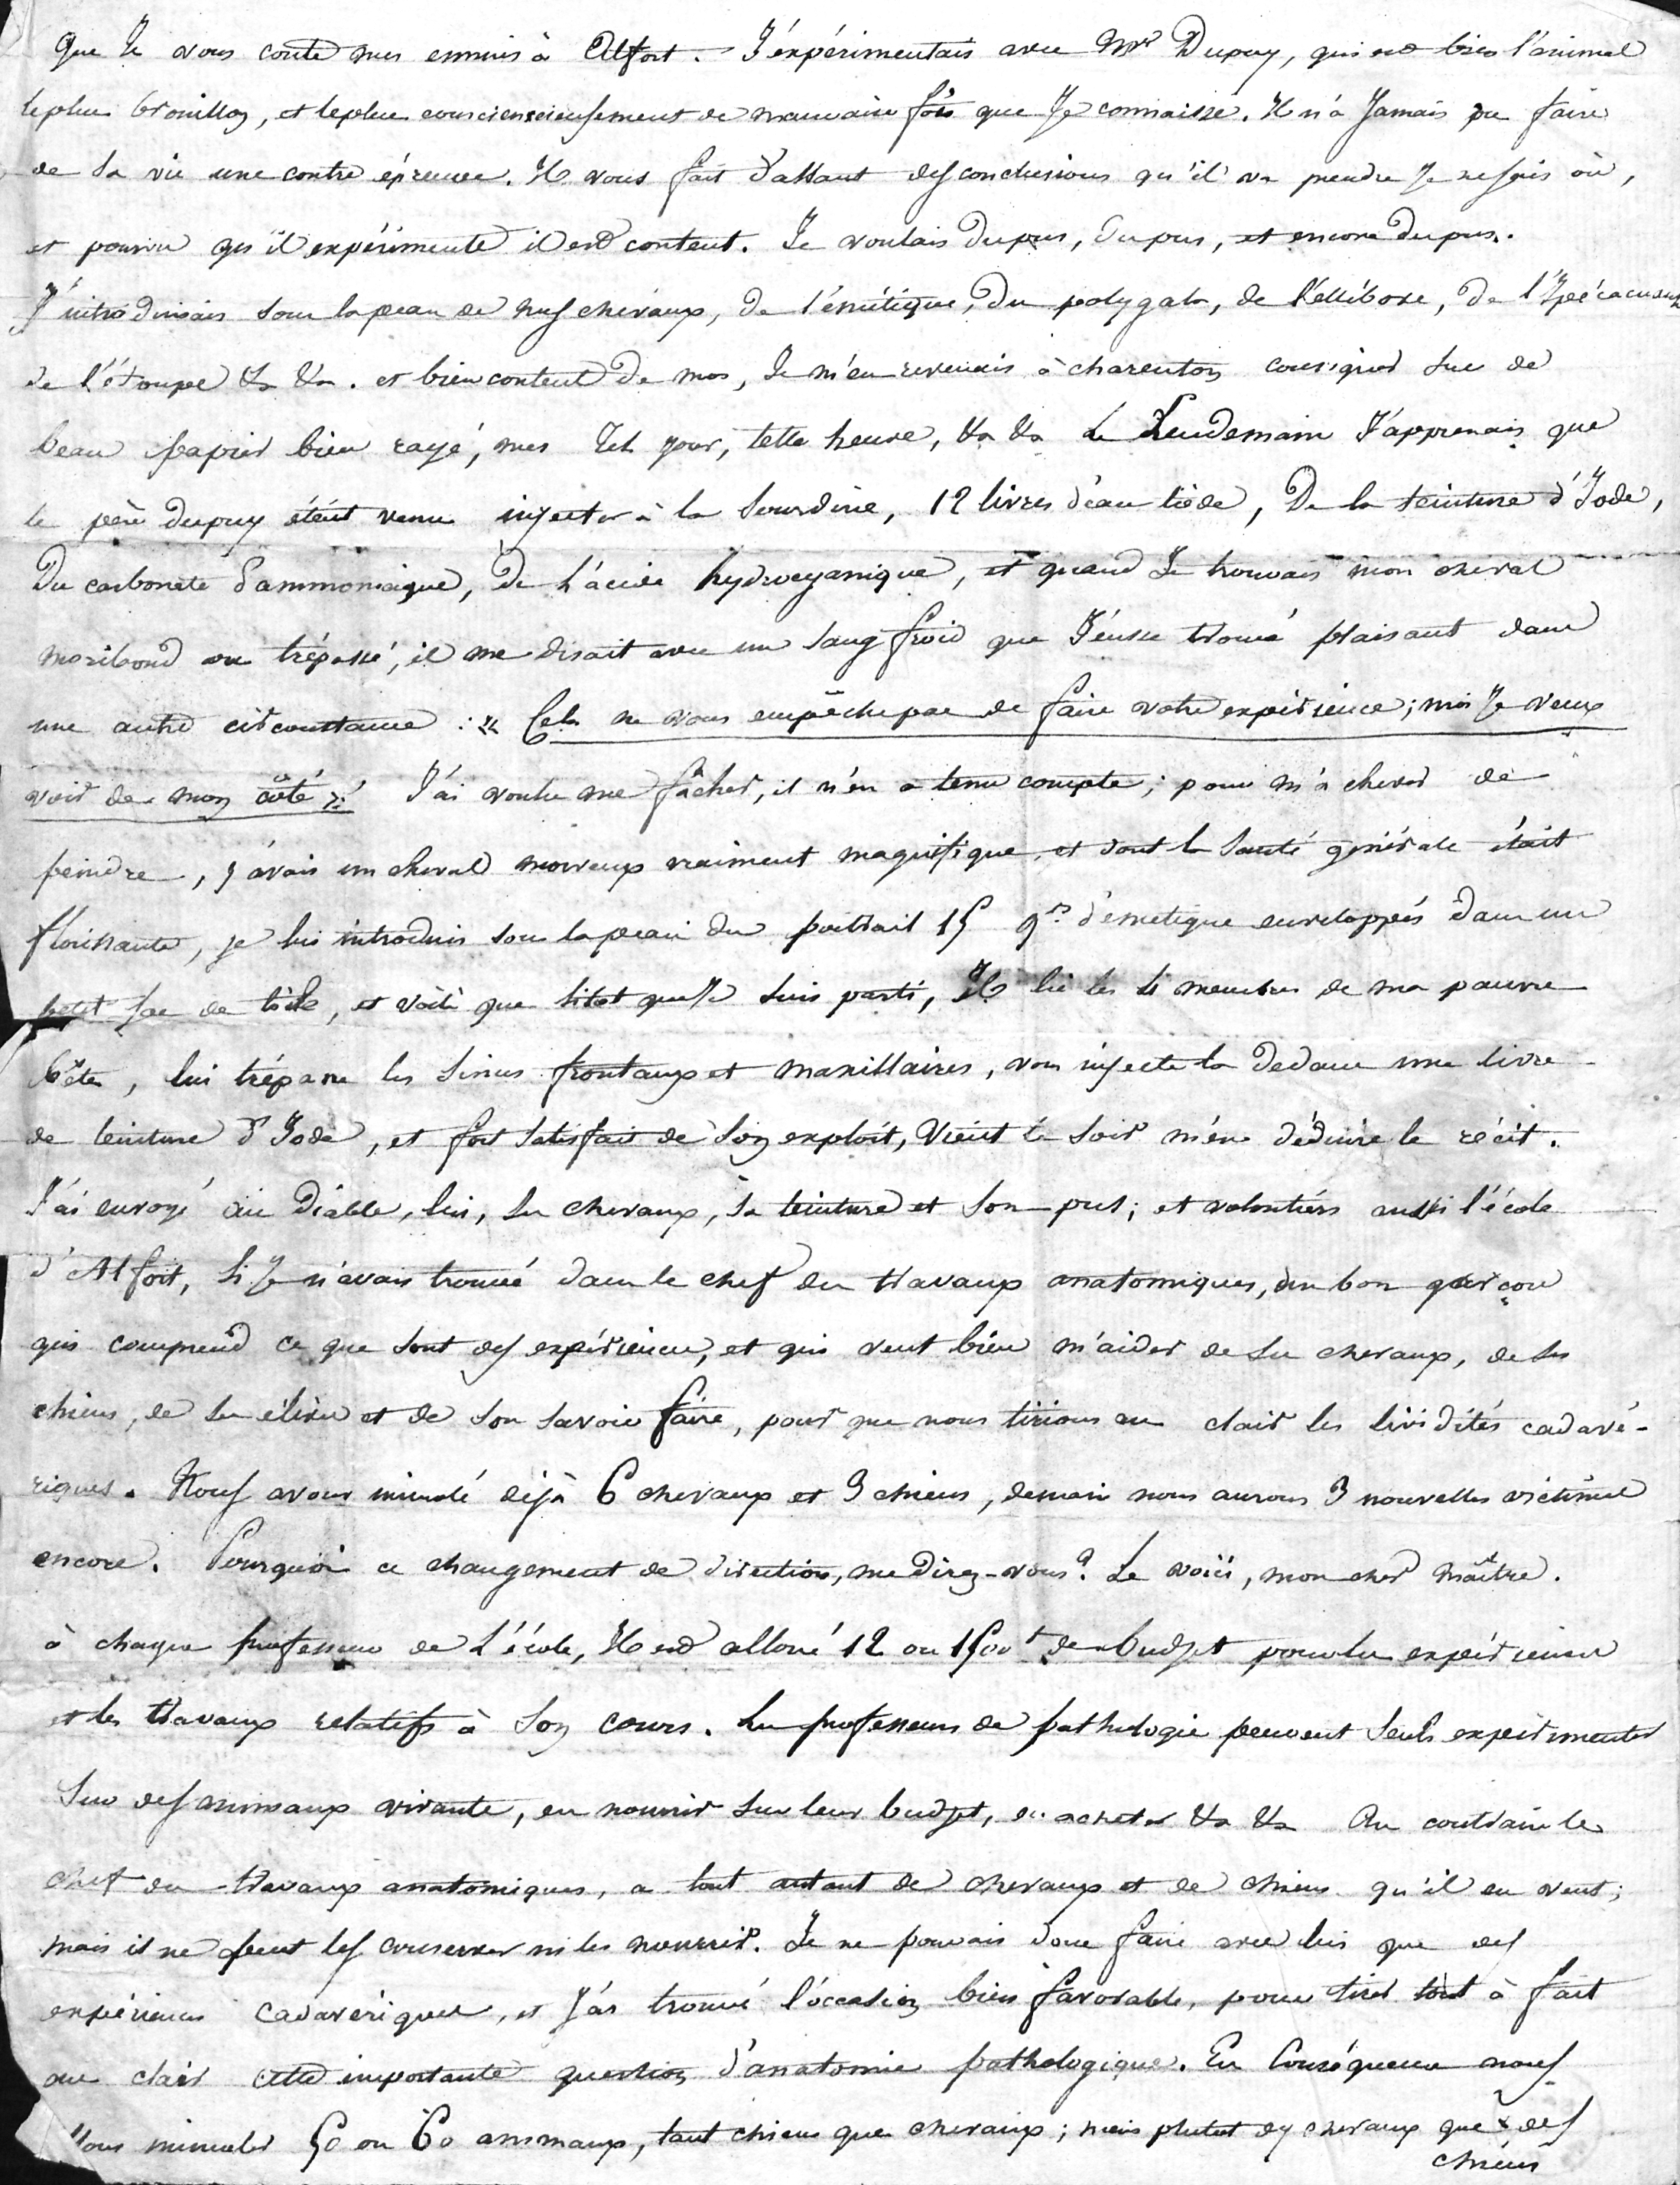 Que Je vous conte mes ennuis à Alfort. J'éxpérimentais avec Mr Dupuy, qui est bien l'animal
le plus brouillon, et le plus conscienscieusement de mauvaise fois que Je connaisse. Il n'à Jamais pu faire
de sa vie une contre épreuve. Il vous fait d'assaut des conclusions qu'il va prendre Je ne sais où,
et pourvu qu'il expérimente il est content. Je voulais du pus, du pus, et encore du pus.
J'introduisais sous la peau de mes chevaux, de l'émétique, du polygala, de l'éllébore, de l'Ipécacuana
de l'étoupe &a &a. et bien content de moi, Je m'en revenais à charenton consigner sur de
beau papier bien rayé, mes tel jour, telle heure, &a &a Le Lendemain J'apprenais que
le père dupuy était venu injecter à la Sourdine, 12 livres d'eau tiède, De la teinture d'Jode,
Du carbonate d'ammoniaque, De L'acide hydrocyanique, et quand Je trouvais mon cheval
moribond ou trépassé, il me disait avec un sang froid que J'eusse trouvé plaisant dans
une autre circonstance : « Cela ne vous empêche pas de faire votre expérience; moi Je veux
voir de mon côté » J'ai voulu me fâcher, il n'en a tenu compte; pour m'achever de
peindre, j'avais un cheval morveux vraiment magnifique, et dont la santé générale était
florissante, je lui introduis sous la peau du poitrail 15 grs d'émetique enveloppés dans un
petit sac de toile, et voilà que sitot que Je suis parti, Il lie les 4 membres de ma pauvre
bête, lui trépane les sinus frontaux et maxillaires, vous injecte la dedans une livre
de teinture d'Jode, et fort satisfait de son exploit, vient le soir m'en déduire le récit.
J'ai envoyé au Diable, lui, ses chevaux, sa teinture et son pus; et volontiers aussi l'école
d'Alfort, si Je n'avais trouvé dans le chef des travaux anatomiques, un bon garçon
qui comprend ce que sont des expériences, et qui veut bien m'aider de ses chevaux, de ses
chiens, de ses élèves et de son savoir faire, pour que nous tirions au clair les lividités cadavé-
riques. Nous avons immolé déjà 6 chevaux et 3 chiens, demain nous aurons 3 nouvelles victimes
encore. Pourquoi ce changement de direction, me direz-vous? Le voici, mon cher maître.
à chaque professeur de L'école, Il est alloué 12 ou 1500 f de budjet pour les expériences
et les travaux relatifs à son cours. Les professeurs de pathologie peuvent seuls expérimenter
sur des animaux vivants, en nourrir sur leur budjet, en acheter &a &a Au contraire le
chef des travaux anatomiques, a tout autant de chevaux et de chiens qu'il en veut;
mais il ne peut les conserver ni les nourrir. Je ne pouvais donc faire avec lui que des
expériences cadavériques, et J'ai trouvé l'occasion bien favorable, pour tirer tout à fait
au clair cette importante question d'anatomie pathologique. En Conséquence nous
allons immoler 50 ou 60 animaux, tant chiens que chevaux; mais plutot des chevaux que des
chiens